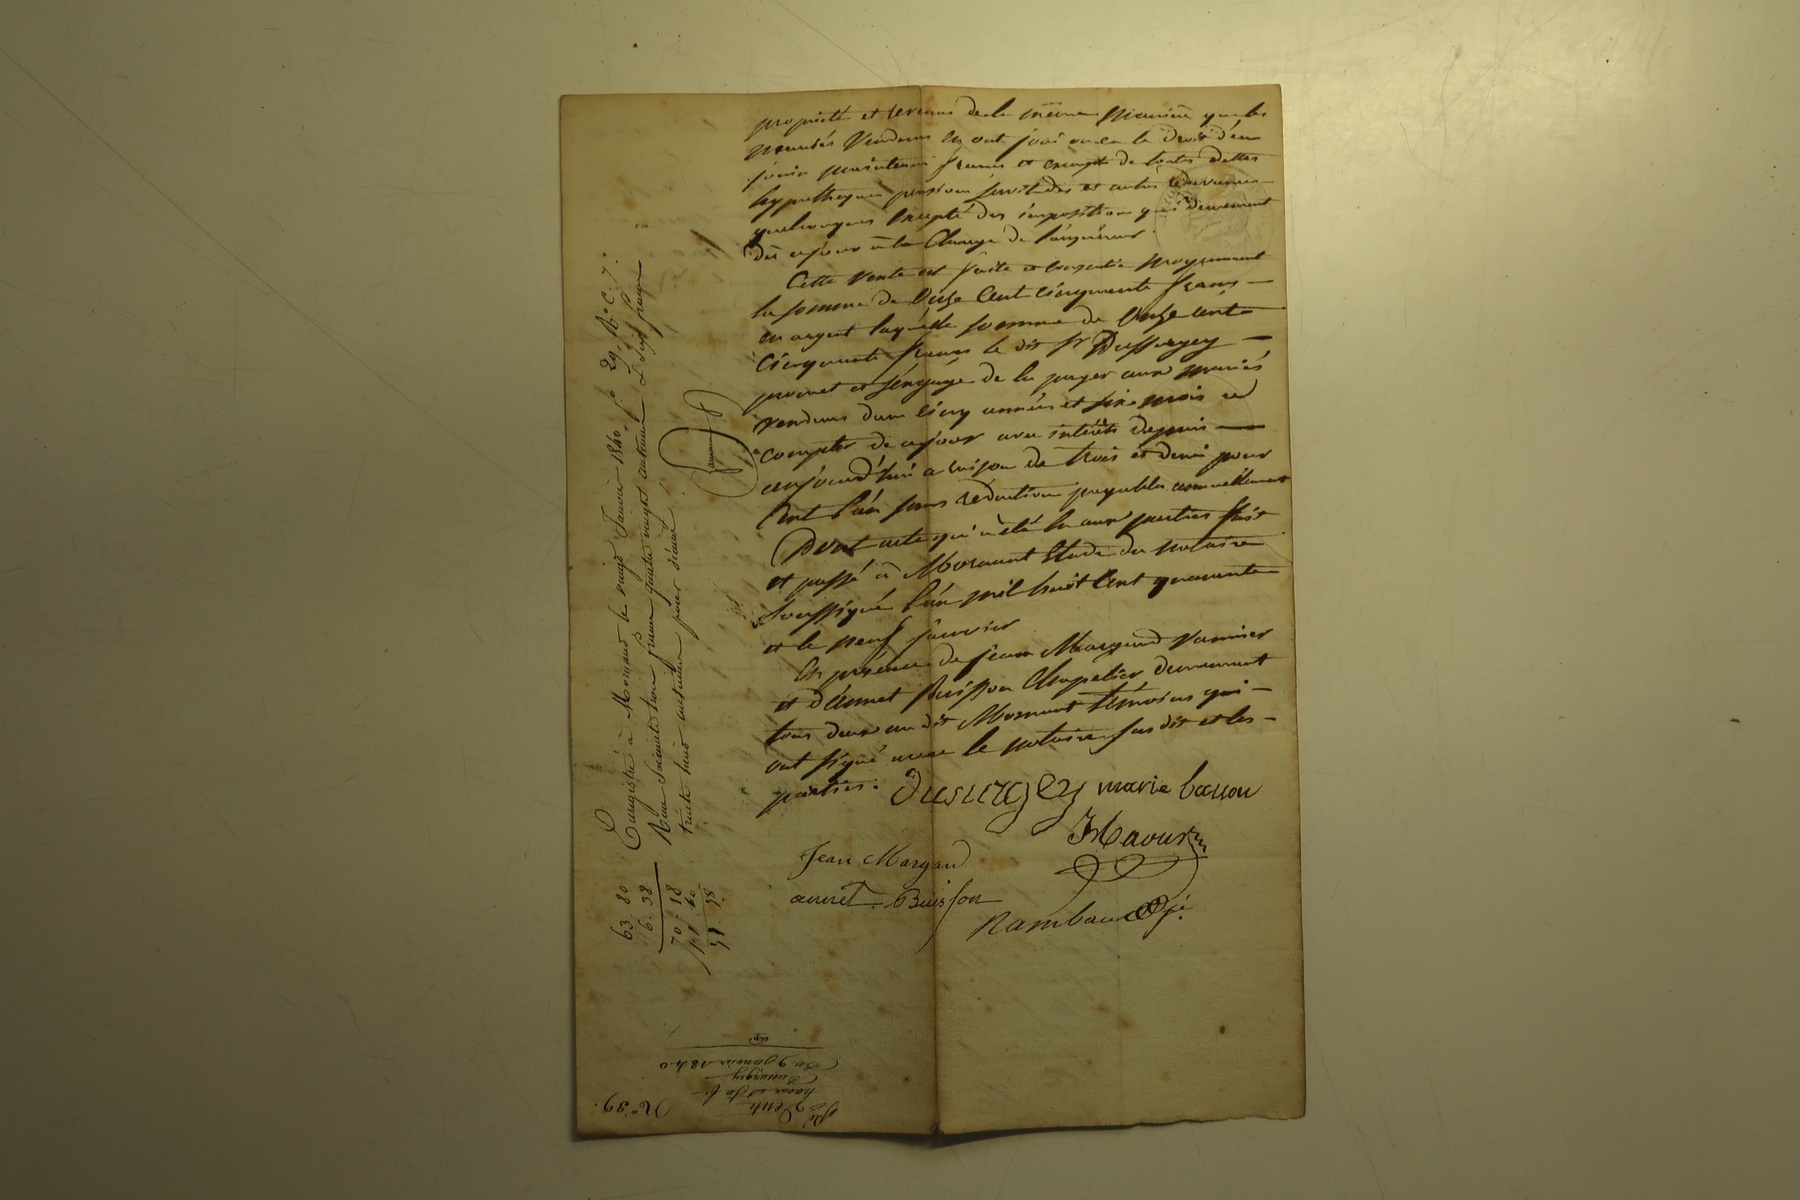 propriété et revenus de la même manière que les
mariés vendeurs en ont joui ou eu le droit d'en
jouir maintenu francs et exempt de toutes dettes
hypothèques pensions servitudes et autres redevances
quelconques excepté des impositions qui demeurent
dès ce jour à la charge de l'acquéreur.
Cette vente est faite et consentie moyennant
la somme de Onze Cent cinquante francs
en argent laquelle somme de Onze cent
cinquante francs le dit sr Dussurgey
promet et s'engage de la payer aux mariés
vendeurs dans cinq années et six mois à
compter de ce jour avec intérêts depuis
aujourd'hui à raison de trois et demi pour
Cent l'an sans réduction payables annuellement
Dont acte qui a été lu aux parties fait
et passé à Mornant Etude du notaire
soussigné l'an mil huit Cent quarante
et le neuf janvier
En présence de Jean Margand vannier
et d'annet Buisson Chapelier demeurant
tous deux au dit Mornant témoins qui
ont signé avec le notaire sus dit et les
parties.
Dusurgey marie basson
Jean Margand
annet Buisson
Enregistré à Mornant le vingt Janvier 1840 fo 29 Ro C. 7.
Reçu soixante trois francs quatre vingts centimes
trente huit centimes pour décime
63. 80
6. 38
70. 18
No 39.
Vente
Dusurgey
Du 9 Janvier 1840
exp